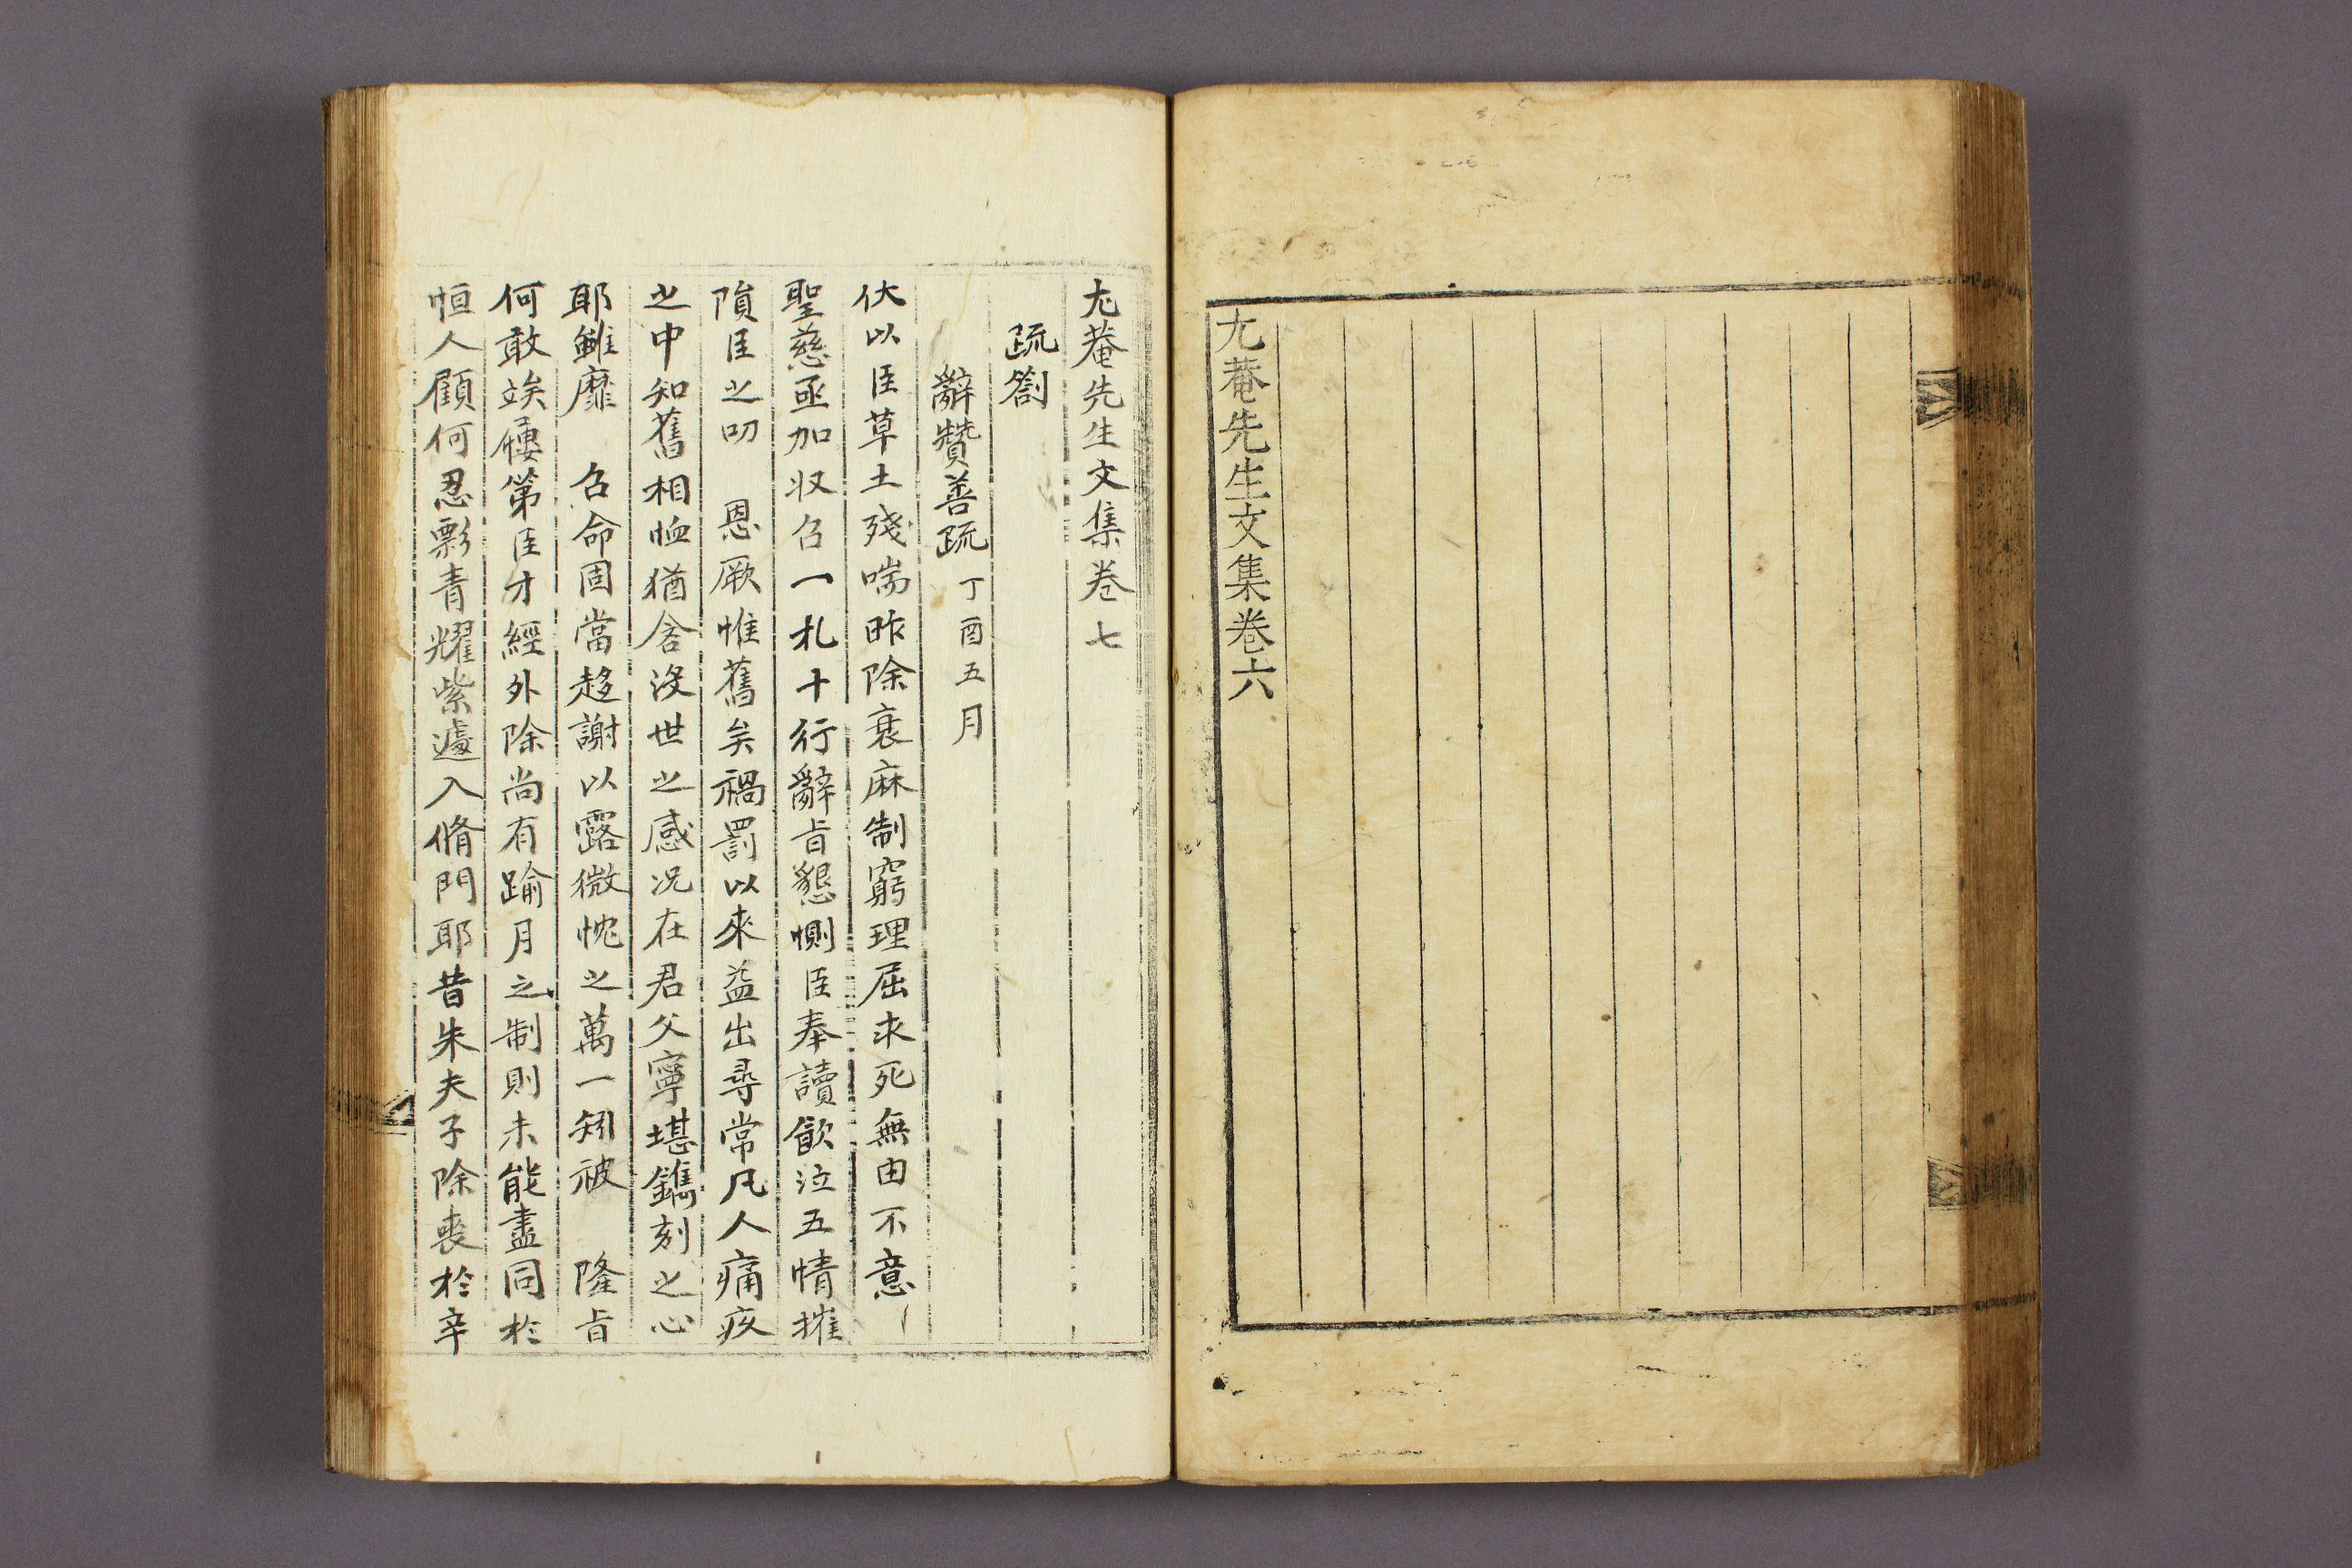 尤菴先生文集卷六
尤菴先生文集卷七
疏劄
辭贊善疏 丁酉五月
伏以臣草土殘喘昨除衰麻制窮理屈求死無由不意
聖慈亟加收召一札十行辭旨懇惻臣奉讀飮泣五情摧
隕臣之叨 恩厥惟舊矣禍罰以來益出尋常凡人痛疾
之中知舊相恤猶含沒世之感况在君父寧堪鐫刻之心
耶雖靡 召命固當趍謝以露微忱之萬一矧被 隆旨
何敢竢屨第臣才經外除尚有踰月之制則未能盡同於
恒人顧何忍影青耀紫遽入脩門耶昔朱夫子除喪於辛